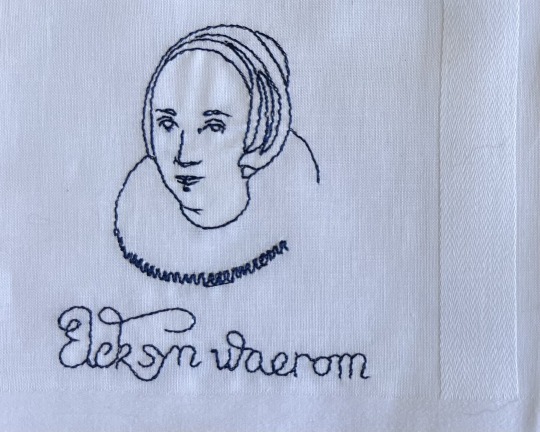 Elck syn waerom